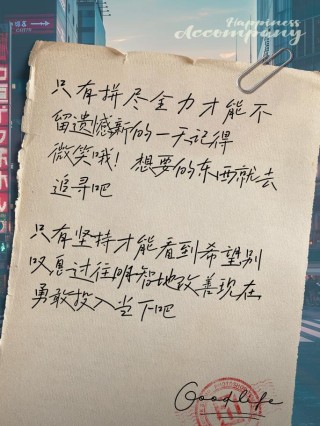 Happiness
Accompany
只有拼尽全力才能不
留遗憾新的一天记得
微笑哦！想要的东西就去
追寻吧
只有坚持才能看到希望别
叹息过往明智地改善现在
勇敢投入当下吧
Goodlife